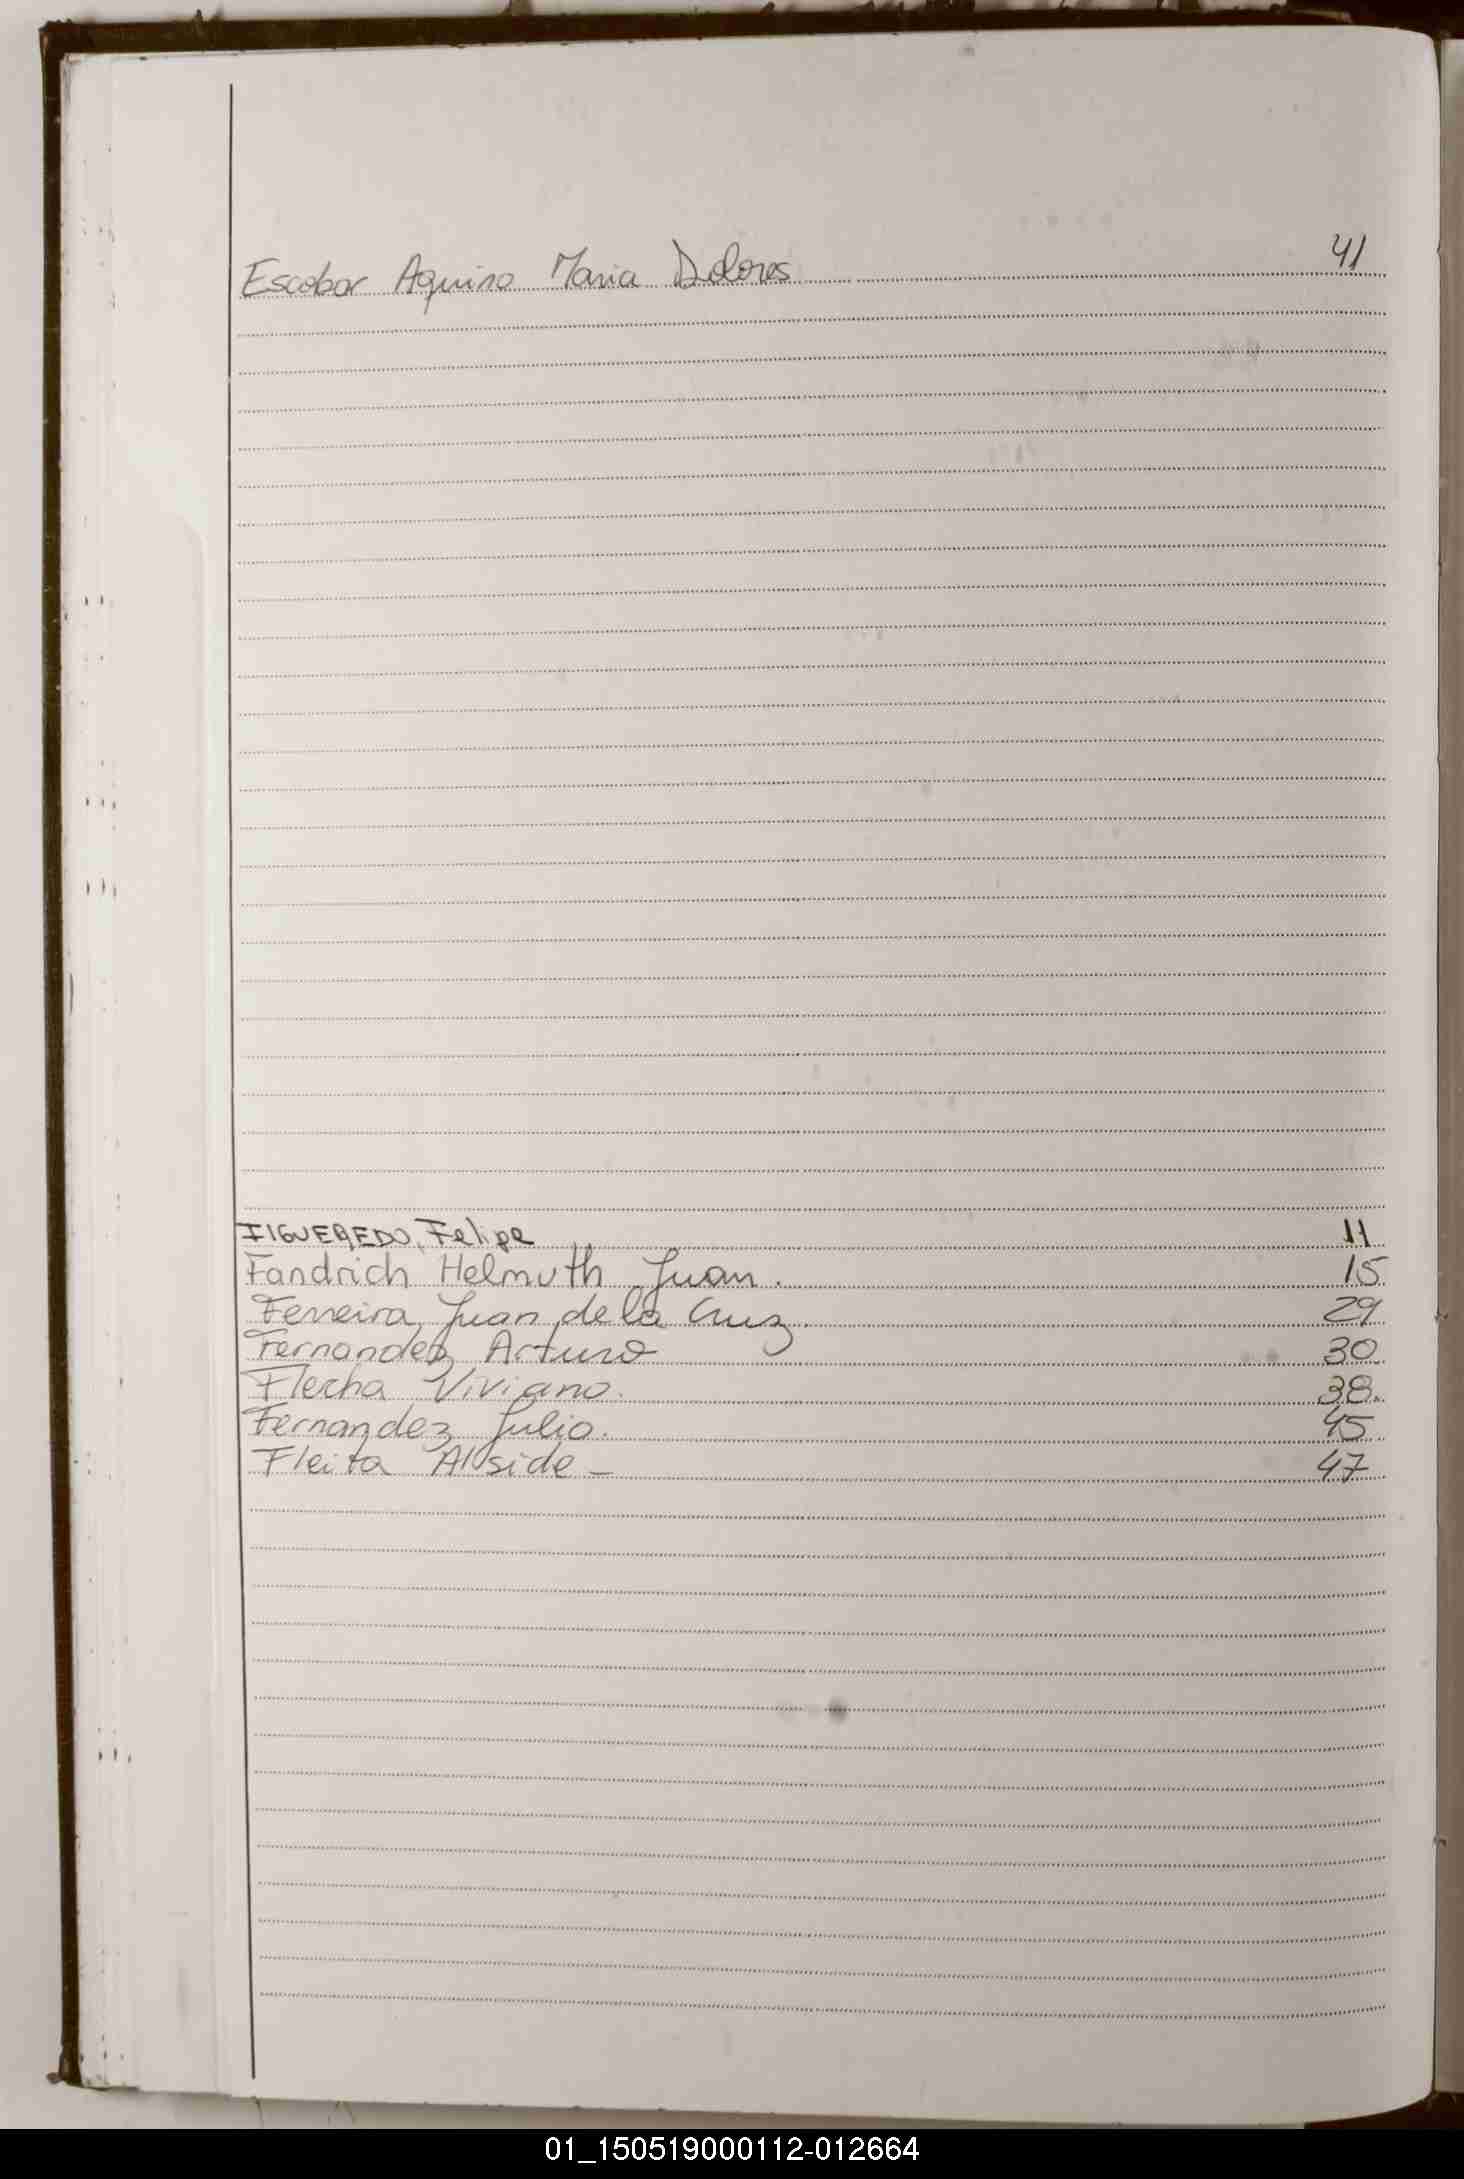 Escobar Aquino Maria Dolores 41
FIGUEREDO, Felipe 11
Fandrich Helmuth Juan. 15
Ferreira, Juan de la Cruz. 29
Fernandez Arturo 30
Flecha Viviano. 38.
Fernandez Julio. 45
Fleita Alside - 47
01_150519000112-012664